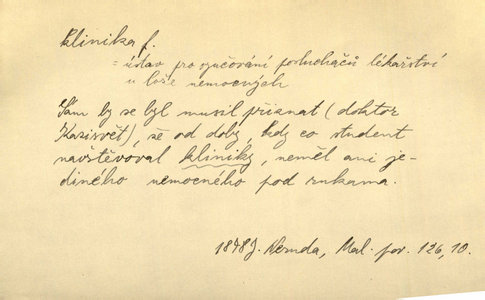 klinika f.
= ústav pro vyučování posluchačů lékařství
u lože nemocných
Sám by se byl musil přiznat (doktor
Kazisvět), že od doby, kdy co student
navštěvoval kliniky, neměl ani je-
diného nemocného pod rukama.
1878 J. Neruda, Mal. pov. 126, 10.